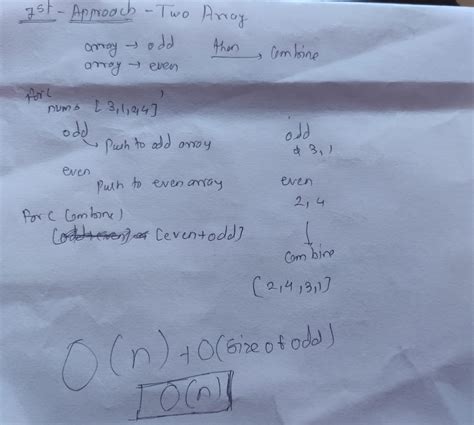 1st - Approach - Two Array
array → odd then → Combine
array → even
for(
nums [3,1,2,4]
odd
→ Push to odd array
even
Push to even array
for( Combine)
[even+odd]
odd
3,1
even
2,4
↓
Combine
[2,4,3,1]
O(n) + O(size of odd)
O(n)